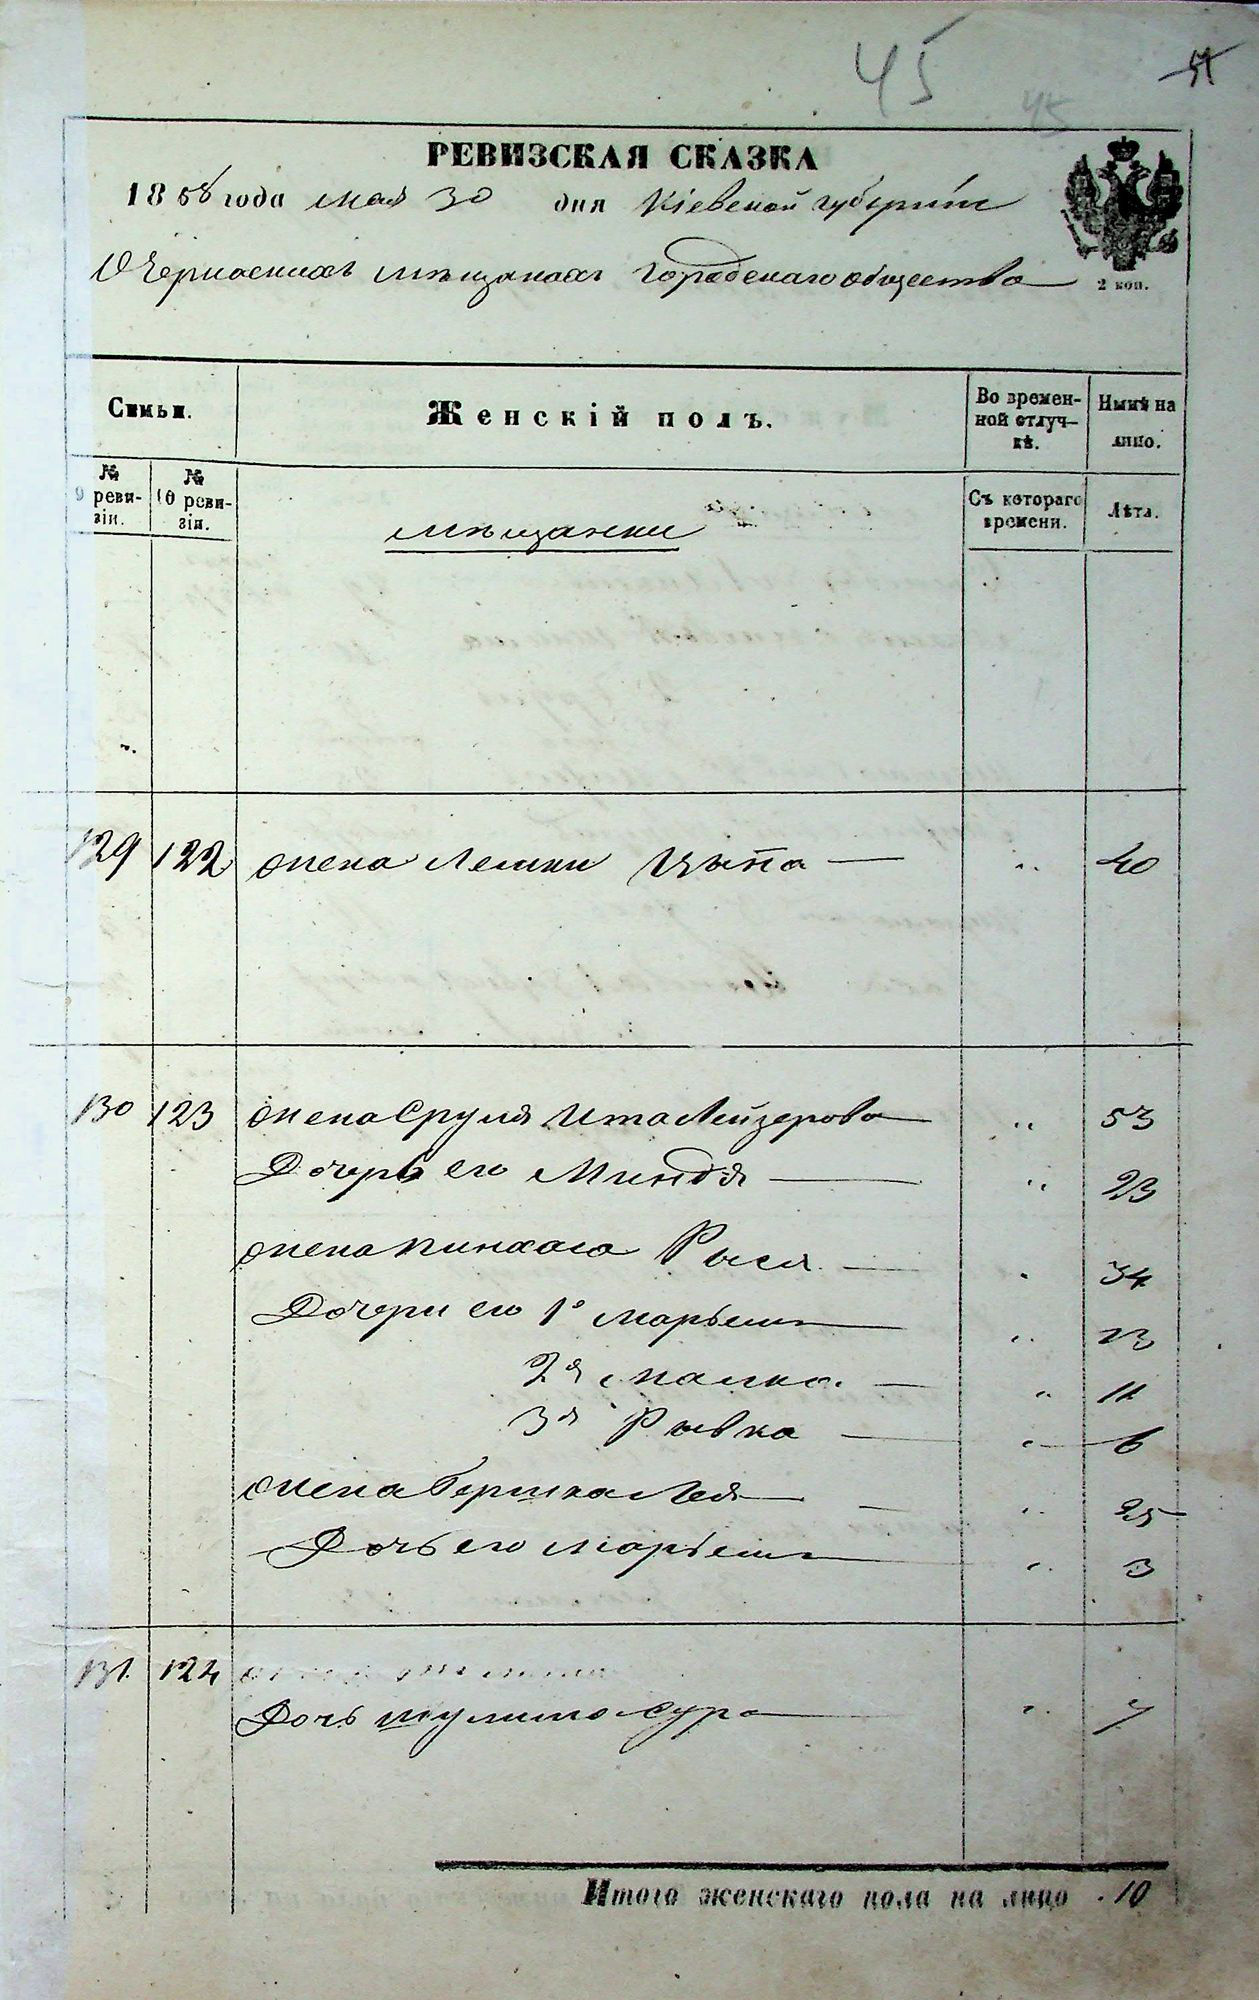 45
45
РЕВИЗСКАЯ СКАЗКА
1858 года мая 30 дня Кіевской губерніи
О Черкаскихъ мѣщанахъ городскаго общества
2 коп.
Семьи.
Женскій полъ.
Во времен-
ной отлуч-
кѣ.
Нынѣ на
лицо.
№
9 реви-
зіи.
№
10 реви-
зія.
Съ котораго
времени.
Лѣта.
мѣщанки
129 122 жена Лемки Цыпа 40
130 123 жена Сруля Ита Лейзерова 53
Дочерь его Миндя 23
жена Пинхаса Рыся 34
Дочери его 1я Марьяша 13
2я Малка 11
3я Рывка 6
жена Гершка Лея 25
Дочь его Марьяша 3
131 124
Дочь Шулима Сура 7
Итого женскаго пола на лицо 10